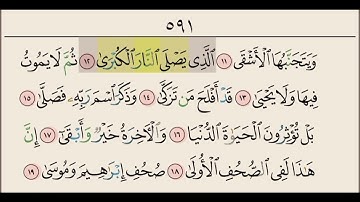 ٥٩١
وَيَتَجَنَّبُهَا الْأَشْقَى ١١ الَّذِي يَصْلَى النَّارَ الْكُبْرَىٰ ١٢ ثُمَّ لَا يَمُوتُ
فِيهَا وَلَا يَحْيَىٰ ١٣ قَدْ أَفْلَحَ مَن تَزَكَّىٰ ١٤ وَذَكَرَ اسْمَ رَبِّهِ فَصَلَّىٰ ١٥
بَلْ تُؤْثِرُونَ الْحَيَوٰةَ الدُّنْيَا ١٦ وَالْآخِرَةُ خَيْرٌ وَأَبْقَىٰ ١٧ إِنَّ
هَٰذَا لَفِي الصُّحُفِ الْأُولَىٰ ١٨ صُحُفِ إِبْرَٰهِيمَ وَمُوسَىٰ ١٩